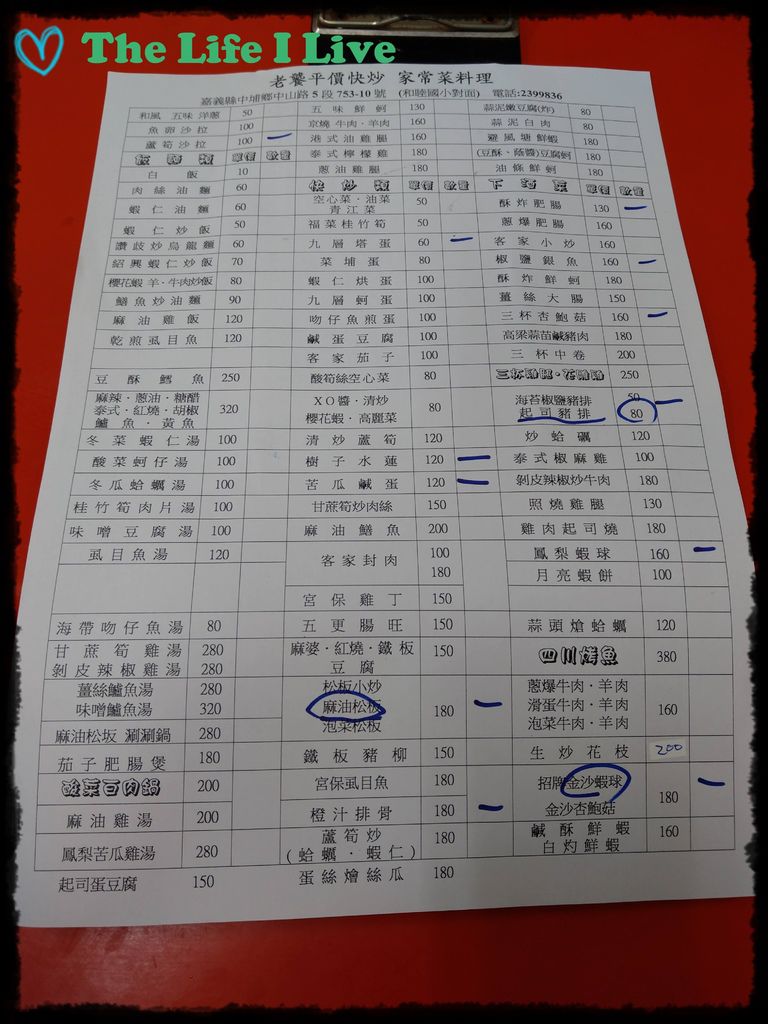 The Life I Live
老饕平價快炒 家常菜料理
嘉義縣中埔鄉中山路5段753-10號 (和睦國小對面) 電話:2399836
和風 五味 洋蔥 50 五味鮮蚵 130 蒜泥嫩豆腐(炸) 80
魚卵沙拉 100 京燒牛肉·羊肉 160 蒜泥白肉 80
蘆筍沙拉 100 港式油雞腿 180 避風塘鮮蝦 180
飯麵類 單價 數量 泰式檸檬雞 180 (豆酥、蔭醬)豆腐蚵 180
白飯 10 蔥油雞腿 180 油條鮮蚵 180
肉絲油麵 60 快炒類 單價 數量 下酒菜 單價 數量
蝦仁油麵 60 空心菜·油菜 青江菜 50 酥炸肥腸 130
蝦仁炒飯 50 福菜桂竹筍 50 蔥爆肥腸 160
讚歧炒烏龍麵 60 九層塔蛋 60 客家小炒 160
紹興蝦仁炒飯 70 菜埔蛋 80 椒鹽銀魚 160
櫻花蝦·羊·牛肉炒飯 80 蝦仁烘蛋 100 酥炸鮮蚵 180
鱔魚炒油麵 90 九層蚵蛋 100 薑絲大腸 150
麻油雞飯 120 吻仔魚煎蛋 100 三杯杏鮑菇 160
乾煎虱目魚 120 鹹蛋豆腐 100 高梁蒜苗鹹豬肉 180
客家茄子 100 三杯中卷 200
豆酥鱈魚 250 酸筍絲空心菜 80 三杯雞腿·花雕雞 250
麻辣·蔥油·糖醋 泰式·紅燒·胡椒 鱸魚·黃魚 320 XO醬·清炒 櫻花蝦·高麗菜 80 海苔椒鹽豬排 50
起司豬排 80
冬菜蝦仁湯 100 清炒蘆筍 120 炒蛤礪 120
酸菜蚵仔湯 100 樹子水蓮 120 泰式椒麻雞 100
冬瓜蛤蠣湯 100 苦瓜鹹蛋 120 剝皮辣椒炒牛肉 180
桂竹筍肉片湯 100 甘蔗筍炒肉絲 150 照燒雞腿 130
味噌豆腐湯 100 麻油鱔魚 200 雞肉起司燒 180
虱目魚湯 120 客家封肉 100 180 鳳梨蝦球 160
月亮蝦餅 100
宮保雞丁 150
海帶吻仔魚湯 80 五更腸旺 150 蒜頭熗蛤蠣 120
甘蔗筍雞湯 280 麻婆·紅燒·鐵板 豆腐 150 四川烤魚 380
剝皮辣椒雞湯 280
薑絲鱸魚湯 280 松板小炒 蔥爆牛肉·羊肉
味噌鱸魚湯 320 麻油松板 180 滑蛋牛肉·羊肉 160
麻油松坂 涮涮鍋 280 泡菜松板 泡菜牛肉·羊肉
茄子肥腸煲 180 鐵板豬柳 150 生炒花枝 200
酸菜白肉鍋 200 宮保虱目魚 180 招牌金沙蝦球 180
麻油雞湯 200 橙汁排骨 180 金沙杏鮑菇
鳳梨苦瓜雞湯 280 蘆筍炒 (蛤蠣·蝦仁) 180 鹹酥鮮蝦 白灼鮮蝦 160
起司蛋豆腐 150 蛋絲燴絲瓜 180